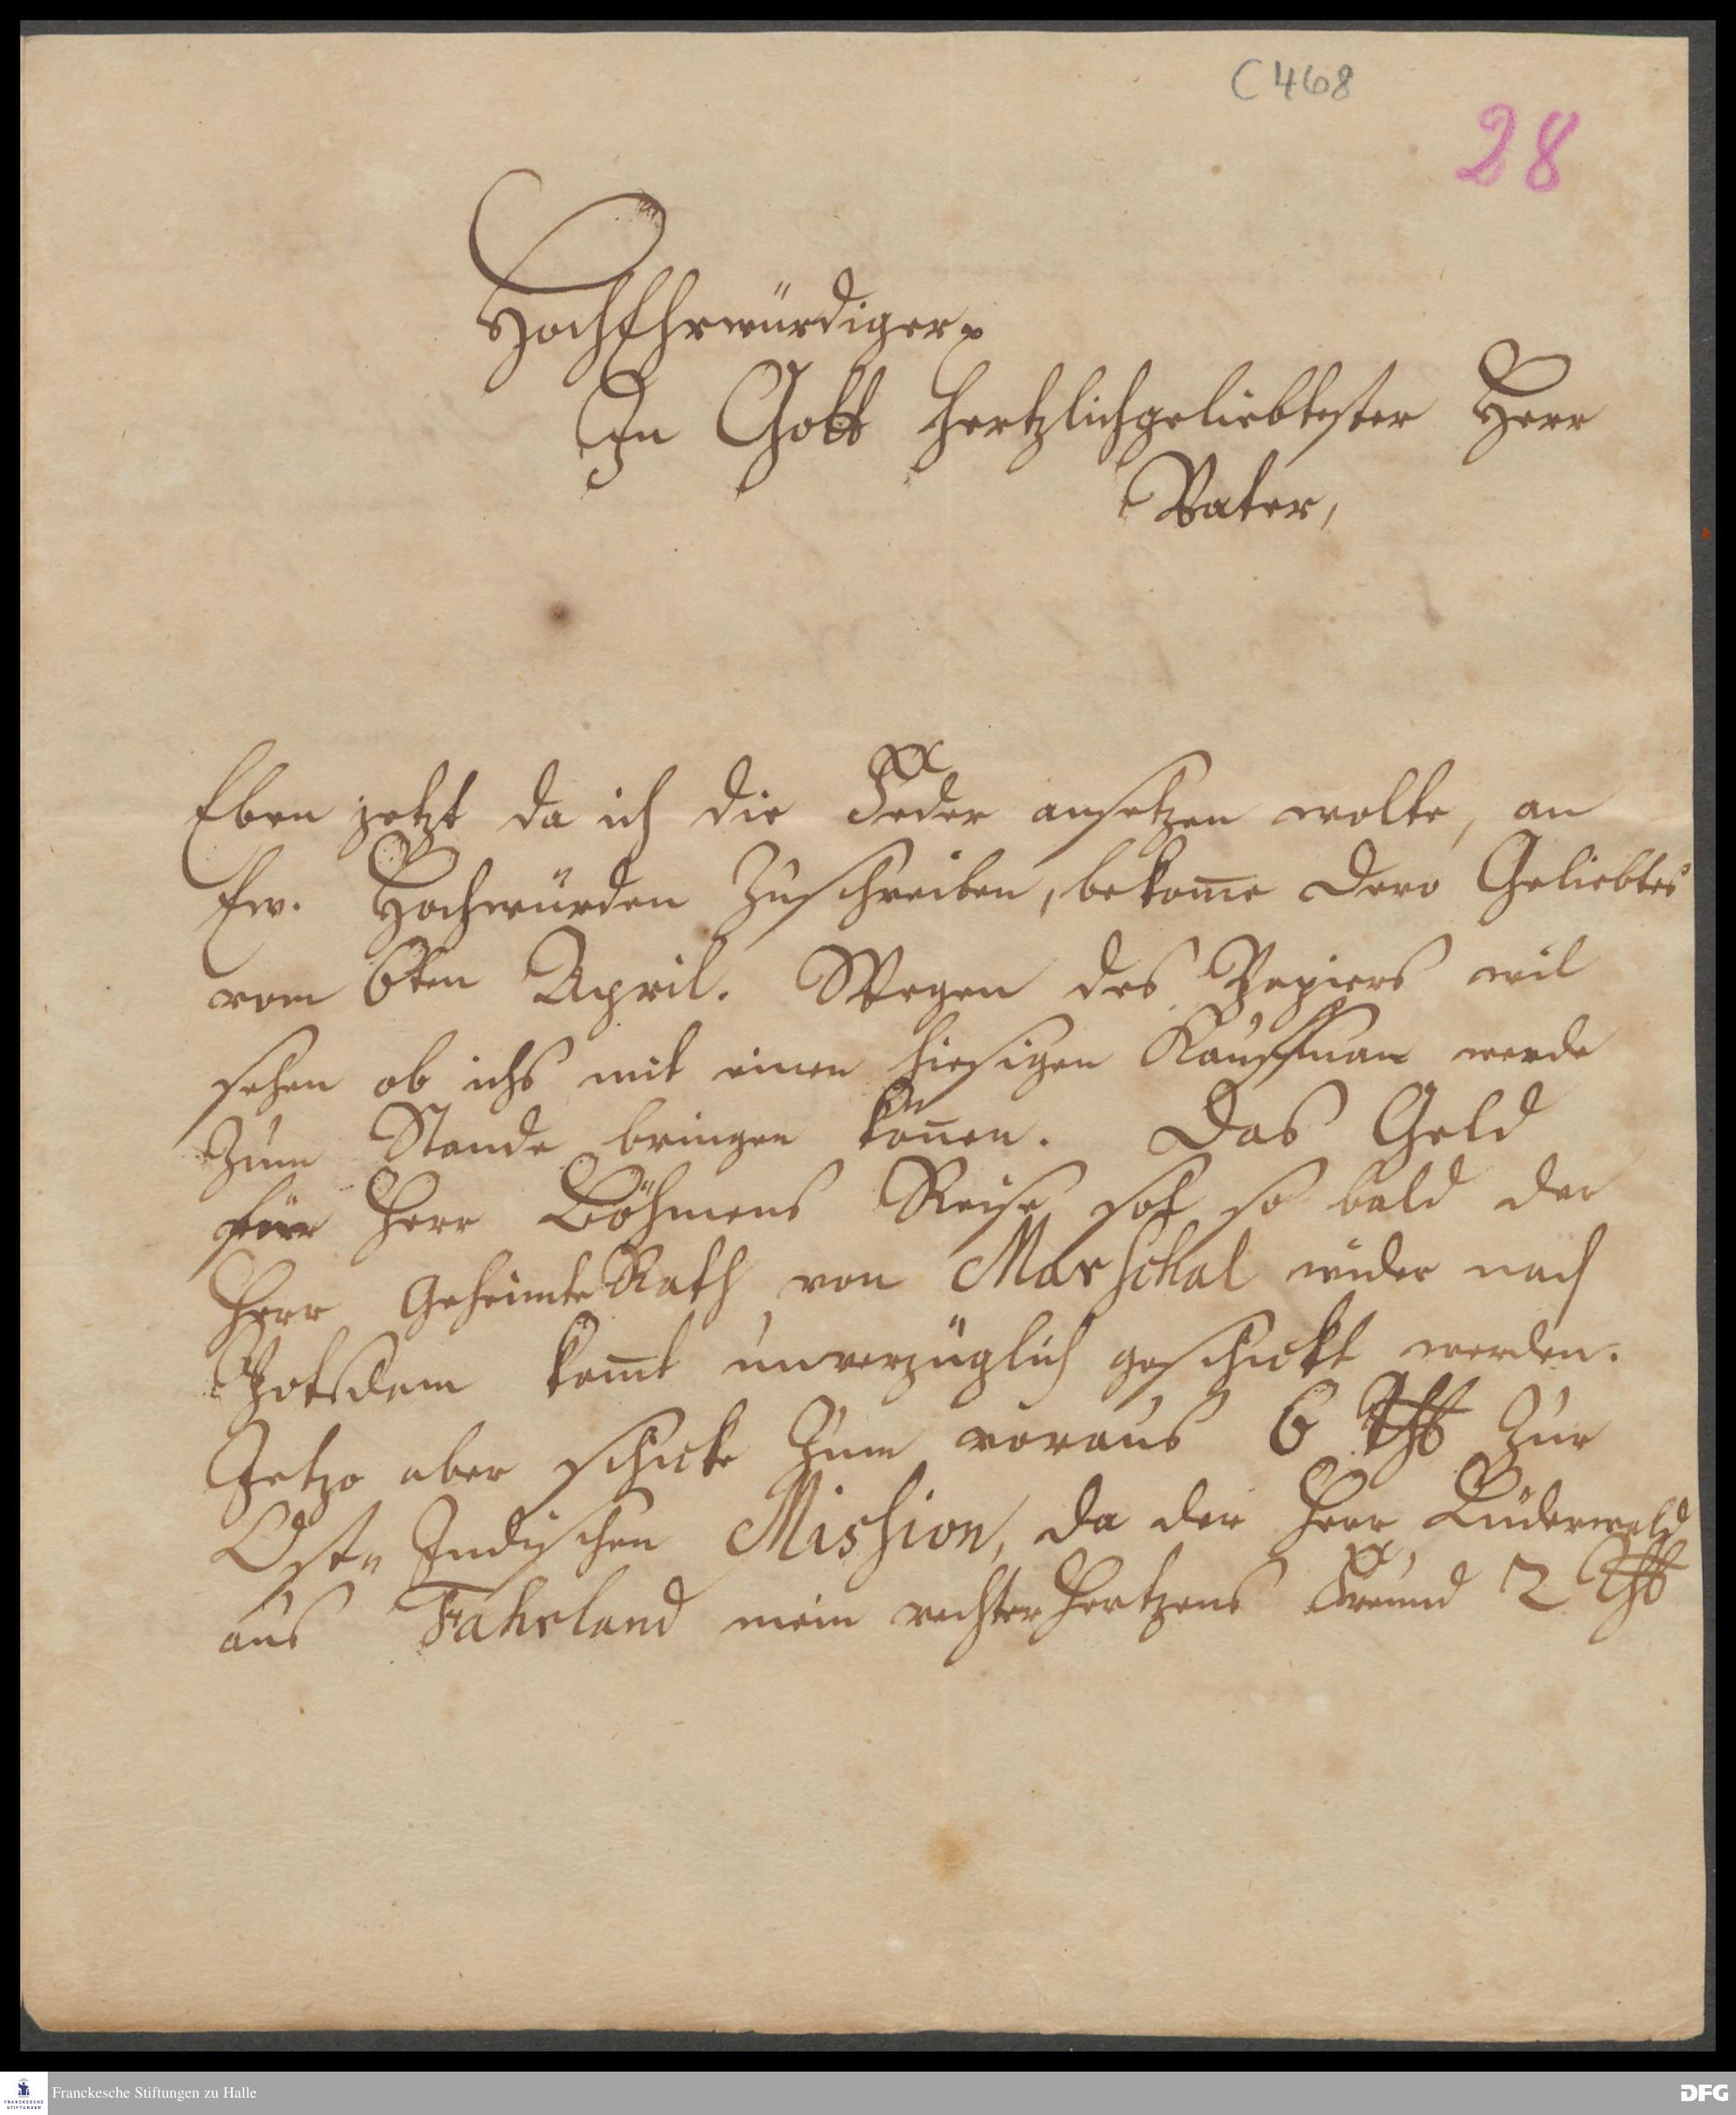 C 468
28
HochEhrwürdiger
In Gott hertzlichgeliebtester Herr
Vater,
Eben jetzt da ich die Feder ansetzen wolte, an
Ew. Hochwürden zuschreiben, bekom̄e dero Geliebtes
vom 6ten April. Wegen des Papiers wil
sehen ob ichs mit einen hiesigen Kauffman werde
zum Stande bringen kön̄en. Das Geld
für Herr Böhmens Reise sol so bald der
Herr Geheimte Rath von Marschal wider nach
Potsdam kom̄t unverzüglich geschickt werden.
Jetzo aber schicke zum voraus 6 Thlr zur
Ost- Indischen Mission, da der Herr Lüderwald
aus Fahrland mein rechter Hertzens Freund 2 Thlr
Franckesche Stiftungen zu Halle
FRANCKESCHE
STIFTUNGEN
DFG